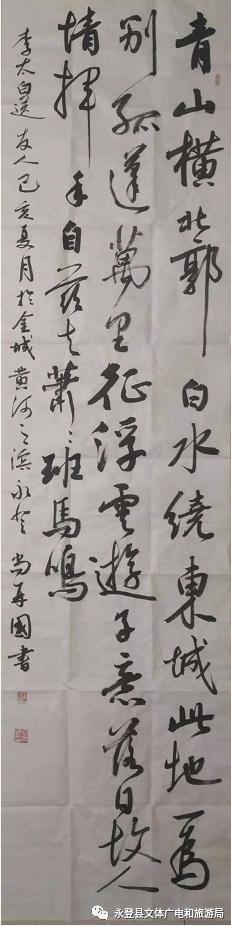 青山橫北郭白水繞東城此地一為
別孤蓬萬里征浮雲遊子意落日故人
情揮手自茲去蕭々班馬鳴
李太白送友人己亥夏月於金城黄河之滨永登尚再國書
永登县文体广电和旅游局